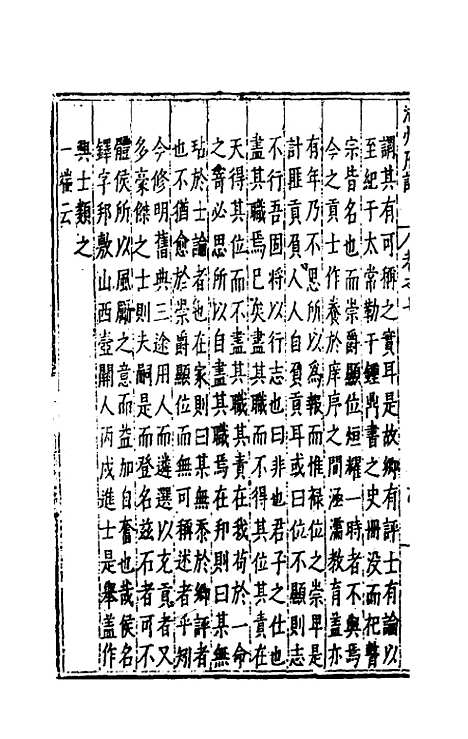 謂其有可稱之實耳是故鄉有評士有論以
至紀于太常勒于鍾鼎書之史冊没而祀瞽
宗皆名也而崇爵顯位烜耀一時者不與焉
今之貢士作養於庠序之間涵濡教育盖亦
有年乃不思所以為報而惟禄位之崇卑是
計匪貢負人人自負貢耳或曰位不顯則志
不行吾固將以行志也曰非也君子之仕也
盡其職焉已矣盡其職而不得其位其責在
天得其位而不盡其職其責在我苟於一命
之寄必思所以自盡其職焉在邦則曰某無
玷於士論者也在家則曰某無忝於鄉評者
也不猶愈於崇爵顯位而無可稱述者乎矧
今修明舊典三途用人而遴選以充貢者又
多豪傑之士則夫嗣是而登名兹石者可不
體侯所以風厲之意而益加自奮也哉侯名
鐸字邦敷山西壺關人丙戌進士是舉盖作
興士類之
一權云